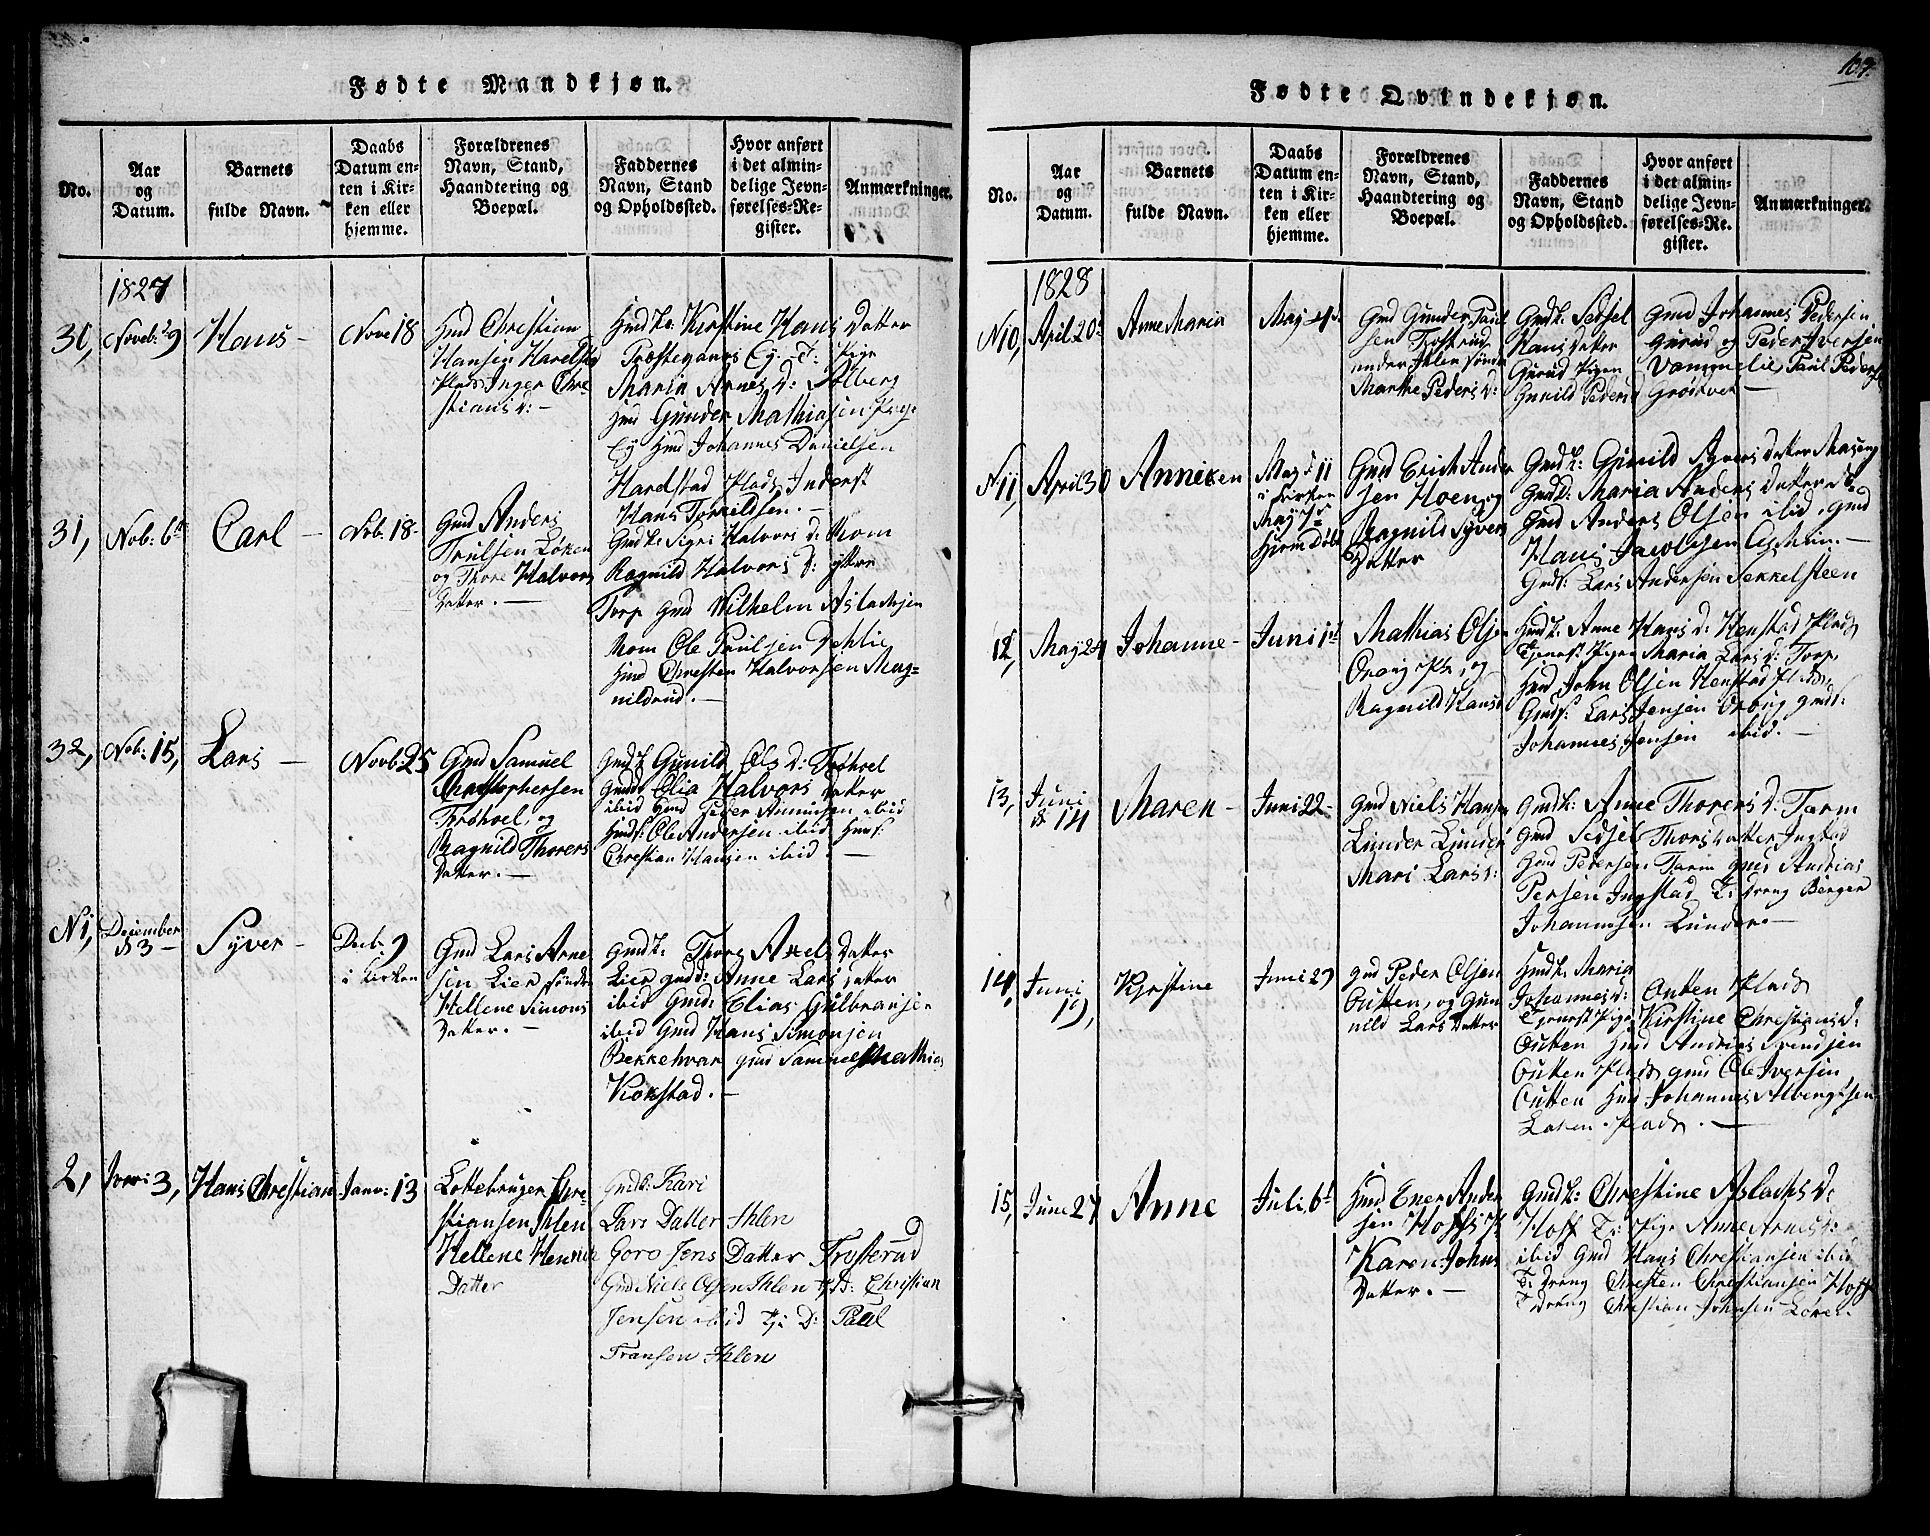 Fødte Mandkjøn.
No.
Aar
og
Datum.
Barnets
fulde Navn.
Daabs
Datum en-
ten i Kir-
ken eller
hjemme.
Forældrenes
Navn, Stand,
Haandtering og
Boepæl.
Faddernes
Navn, Stand
og Opholdssted.
Hvor anført
i det almin-
delige Jevn-
førelses-Re-
gister.
Anmærkninger.
1827
31, Noveb: 9 Hans - Nove 18
Hmd Christian
Hansen
Plads Inger Chri-
stians d: -
Hmd k: Kirstine Hans Datter
Præstegaards Ej: T: Pige
Maria Arnes D: Solberg
Hmd Gunder Mathiasen
Ej Hmd Johannes Danielsen
Harelstad Plads
Hans Torkildsen. -
31, Nob: 6te Carl - Nob. 18-
Gmd Anders
Trulsen Løken
og Thore Halvors
Datter. -
Gmdk: Sigri Halvors d: Mom
Ragnild Halvors D:
Torp Gmd Wilhelm Aslachsen
Mom Ole Paulsen Dehlie
Hmd Christen Halvorsen Mag=
nildrud. -
32, Nob: 15, Lars - Novb: 25
Gmd Samuel
Christophersen
Frøhoel, og
Ragnild Thorers
Datter. -
Gmdk Gunild Ols D: Frøhoel
Gmdd Olia Halvors Datter
ibid Hmd Peder Amunsen ibid
Hmds: Ole Andersen ibid Hmds:
Christian Hansen ibid. -
N1, Desember
d 3 - Syver - Decb. 9
i Kirken
Gmd Lars Arne
sen Lier søndre
Hellene Simons
Datter. -
Gmdk: Thore Axels Datter
Lier gmdd: Anne Lars Datter
ibid Gmd: Elias Gulbransen
ibid Gmd Hans Simonsen
Bekkehvar gmd Samuel Mathies
Kokstad. -
2, Janv: 3, Hans Christian Janv: 13
Lottebruger Chri-
stiansen Ihlen
Hellene Henrik
Datter
Gmdk: Kari
Lars Datter Ihlen
Goro Jens Datter Trysterud
Gmd Niels Olsen Ihlen Tj D: Christian
Jensen ibid Tj: D: Paul
Fransen Ihlen
107.
Fødte Qvindekjøn.
No.
Aar
og
Datum.
Barnets
fulde Navn.
Daabs
Datum en-
ten i Kir-
ken eller
hjemme.
Forældrenes
Navn, Stand,
Haandtering og
Boepæl.
Faddernes
Navn, Stand
og Opholdssted.
Hvor anført
i det almin-
delige Jevn-
førelses-Re-
gister.
Anmærkninger.
1828
N10, April 20: Anne Maria May 4de
Gmd Gunder Paul
sen Trostrud
under Ihlen søndre
Marthe Peders D:
Gmdk: Sidsel
Hans Datter
Gurud Pigen
Gunild Peders d
Gmd Johannes Pedersen
Gurud og Peder Iversen
Paul Peders
Grødtvet -
N11, April 30 Anniken
May d 11
i Kirken
May 7de
Hjem Døbt
Gmd Erich Ander
sen Hoen, og
Ragnild Syvers
Datter
Gmdk: Gunild Syvers datter
Gmdd: Maria Anders Datter
Gmd Anders Olsen ibid, gmd
Hans Jacobsen -
Gmds: Lars Andersen Sekkelsteen
12, May 24 Johanne - Juni 1st
Mathias Olsen
og
Ragnild Hans d
Hmdk: Anne Hans D: Henstad Plads
Tjenest Pigen Maria Lars d: Torp
Hmd John Olsen Henstad Plads
Gmds: Lars Jensen gmds:
Johannes Jensen ibid. -
13, Juni
d 14 Maren - Juni 22 -
Gmd Niels Hansen
Lunder Lunder
Mari Lars d:
Gmdk: Anne Thorers D: Tarm
Gmd Sidsel Thors Datter Ingstad
Gmd Pedersen Tarm gmd Andrias
Persen Ingstad T: Dreng Børger
Johannsen Lunder. -
14, Juni
19, Kjrstine Juni 29
gmd Peder Olsen
Outten, og Gun
nild Lars Datter
Hmdk: Maria
Johannes d: Outen Plads
Tjenest Pige Kirstine Christians D:
Outten Hmd Andrias Svendsen
Outten Plads gmd Ole Iversen
Outten Hmd Johannes Albengtsen
Løken Plads. -
15, June 27 Anne Juli 6te
Hmd Ener Ander
sen Hoffs P.
Karen Johns
Datter. -
Gmdk: Christine Aslachs D:
Hoff T: Pige Anne Arnes d:
ibid Gmd Hans Christiansen ibid
T: Dreng Christen Christiansen Hoff
T Dreng Christian Johnsen Løken